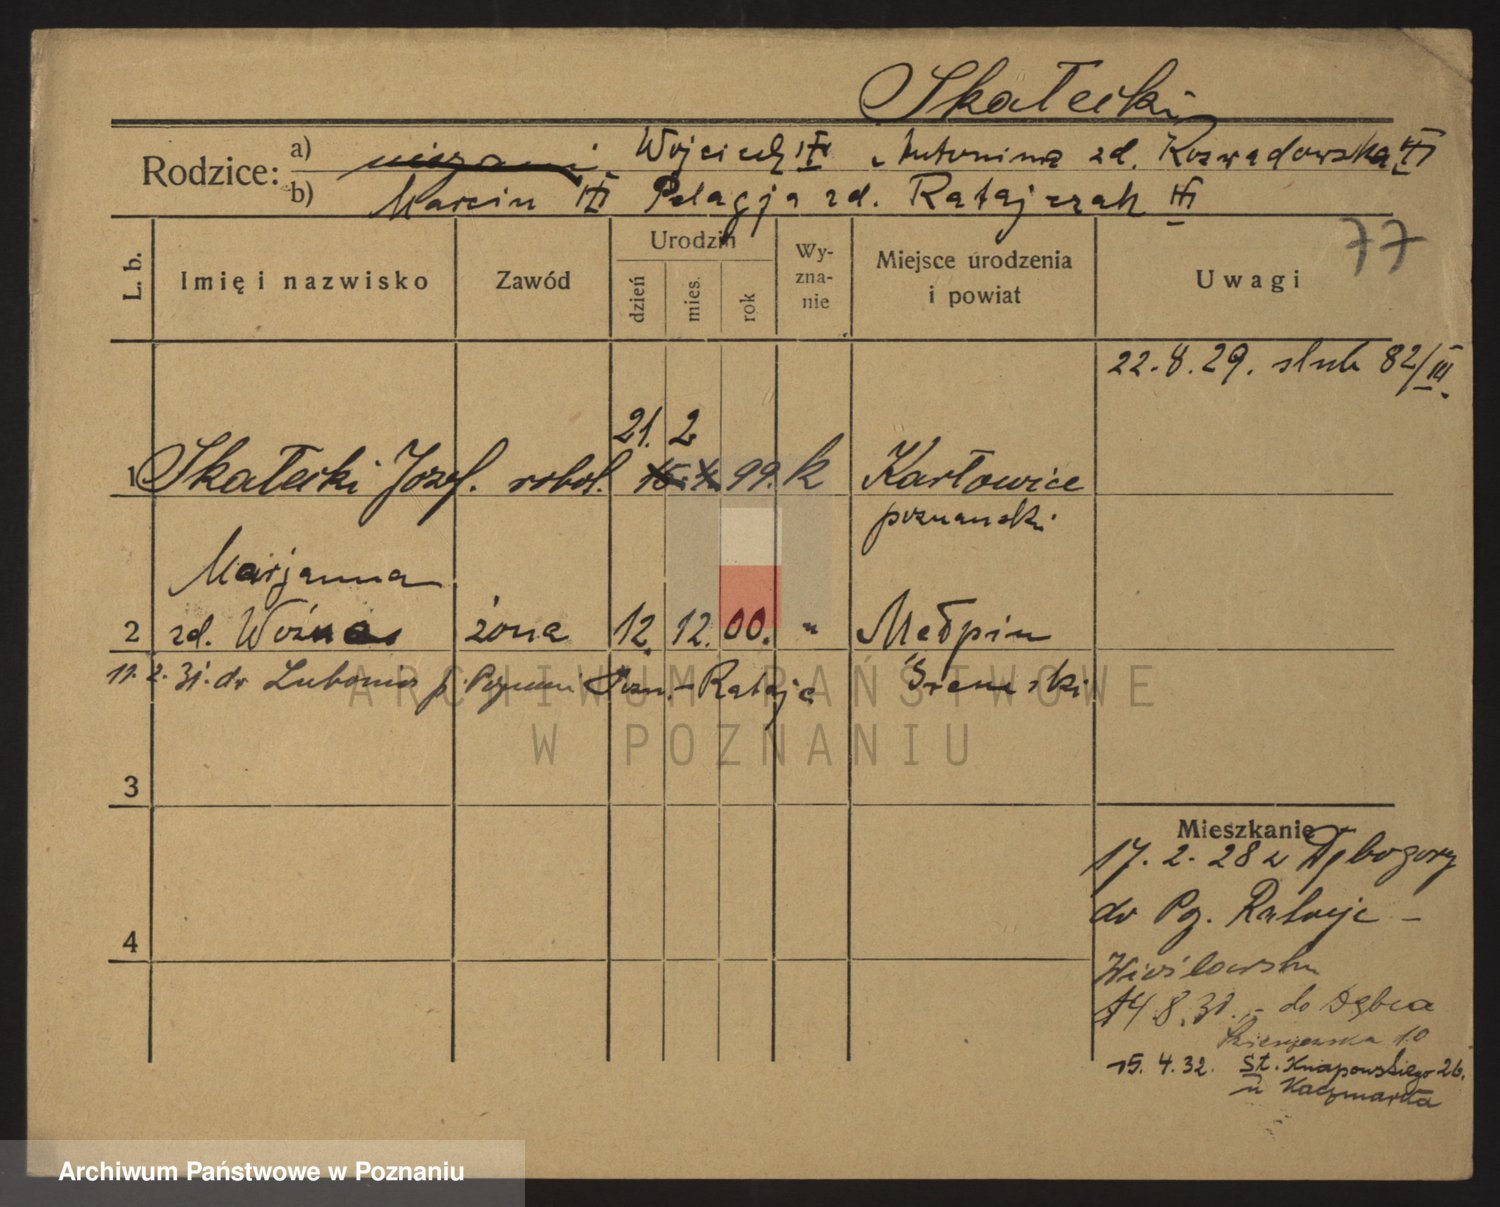 Skałecki
Rodzice: a) Wojciech Antonina zd. Rozwadowska
b) Marcin Pelagja zd. Ratajczak
77
L. b. Imię i nazwisko Zawód Urodzin dzień mies. rok Wy-zna-nie Miejsce urodzenia i powiat Uwagi
22.8.29. slub 82/III.
21. 2
1 Skałecki Józef. robot. 99. k Karłowice
poznański
Marjanna
2 zd. Woźna żona 12. 12. 00. " Mełpin
11.2.31. do Lubonia p. Poznań Śremski
3
Mieszkanie
17.2.28 z Dębogóry
4 do Rataje -
14.8.31. - do Dębca
10
15.4.32. St. Knapowskiego 26.
u Kaczmarka
ARCHIWUM PAŃSTWOWE
W POZNANIU
Archiwum Państwowe w Poznaniu